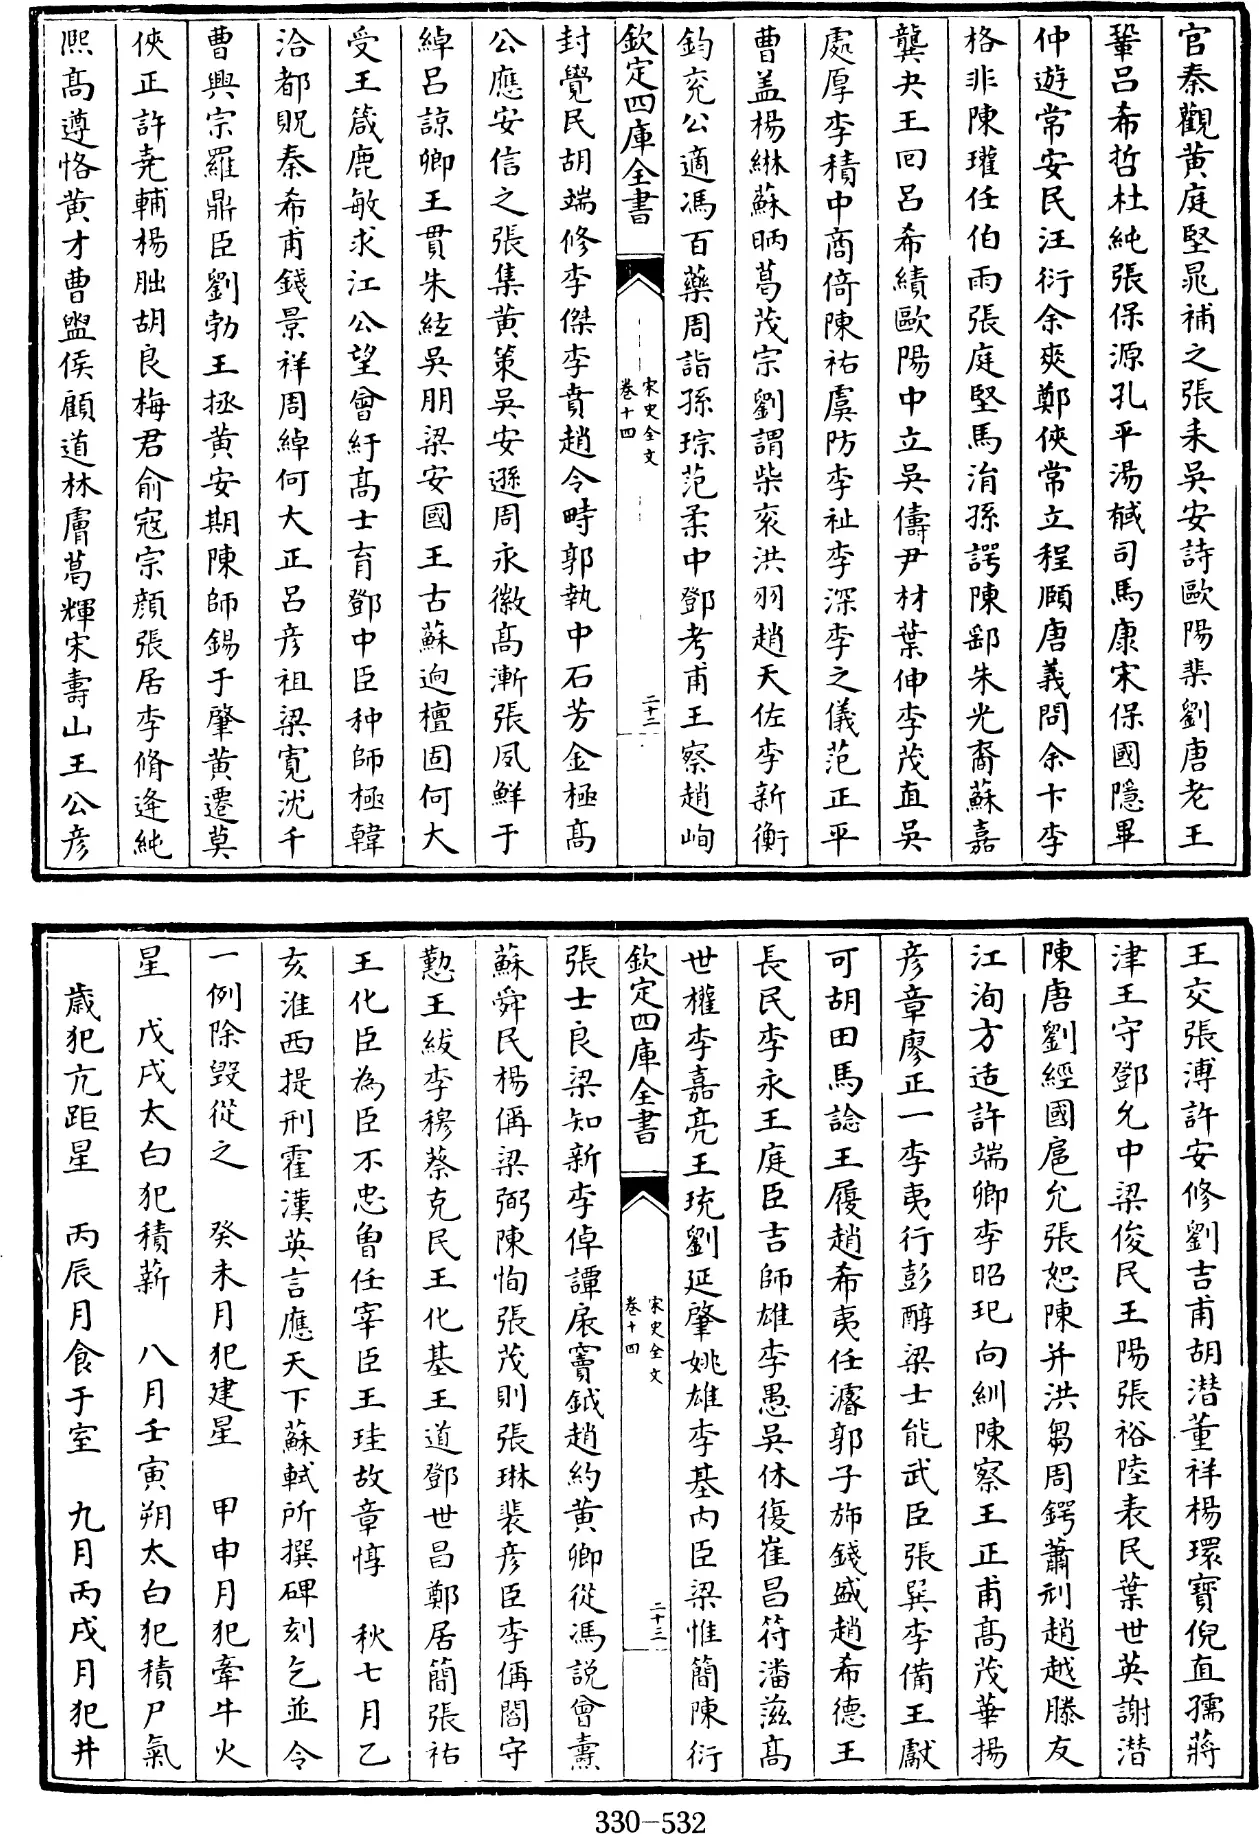 官秦觀黄庭堅晁補之張耒吴安詩歐陽棐劉唐老王
鞏呂希哲杜純張保源孔平湯馘司馬康宋保國隱畢
仲遊常安民汪衍余爽鄭俠常立程頤唐義問余卞李
格非陳瓘任伯雨張庭堅馬涓孫諤陳郛朱光裔蘇嘉
龔夬王回呂希績歐陽中立吴儔尹材葉伸李茂直吴
處厚李積中商倚陳祐虞防李祉李深李之儀范正平
曹盖楊綝蘇昞葛茂宗劉謂柴衮洪羽趙天佐李新衡
鈞兖公適馮百藥周詣孫琮范柔中鄧考甫王察趙峋
欽定四庫全書
宋史全文
卷十四
二十二
封覺民胡端修李傑李賁趙令畤郭執中石芳金極髙
公應安信之張集黄策吴安遜周永徽髙漸張夙鮮于
綽呂諒卿王貫朱紘吴朋梁安國王古蘇逈檀固何大
受王箴鹿敏求江公望曾紆髙士育鄧中臣种師極韓
洽都貺秦希甫錢景祥周綽何大正呂彦祖梁寛沈千
曹興宗羅鼎臣劉勃王拯黄安期陳師錫于肇黄遷莫
俠正許尭輔楊朏胡良梅君俞寇宗顔張居李脩逄純
熈髙遵恪黄才曹盥侯顧道林膚葛輝宋壽山王公彦
王交張溥許安修劉吉甫胡潜董祥楊環寶倪直孺蔣
津王守鄧允中梁俊民王陽張裕陸表民葉世英謝潜
陳唐劉經國扈允張恕陳并洪芻周鍔蕭刓趙越滕友
江洵方适許端卿李昭玘向紃陳察王正甫髙茂華揚
彦章廖正一李夷行彭醇梁士能武臣張巽李備王獻
可胡田馬諗王履趙希夷任濬郭子斾錢盛趙希德王
長民李永王庭臣吉師雄李愚吴休復崔昌符潘滋髙
世權李嘉亮王珫劉延肇姚雄李基内臣梁惟簡陳衍
欽定四庫全書
宋史全文
卷十四
二十三
張士良梁知新李倬譚扆竇鉞趙約黄卿從馮説曾燾
蘇舜民楊偁梁弼陳恂張茂則張琳裴彦臣李偁閻守
懃王紱李穆蔡克民王化基王道鄧世昌鄭居簡張祐
王化臣為臣不忠曽任宰臣王珪故章惇　秋七月乙
亥淮西提刑霍漢英言應天下蘇軾所撰碑刻乞並令
一例除毁從之　癸未月犯建星　甲申月犯牽牛火
星　戊戌太白犯積薪　八月壬寅朔太白犯積尸氣
歲犯亢距星　丙辰月食于室　九月丙戌月犯井
330-532